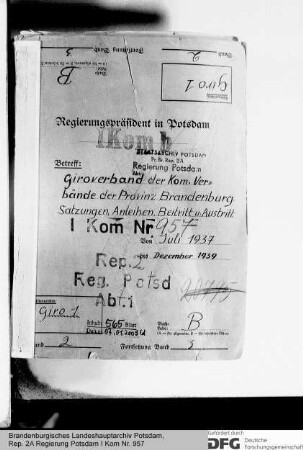 Giro 1
Regierungspräsident in Potsdam
I Kom b
STAATSARCHIV POTSDAM
Pr. Br. Rep. 2A
Betreff:
Regierung Potsdam
Giroverband der Kom. Ver=
bände der Provinz Brandenburg
Satzungen, Anleihen, Beitritt u. Austritt
I Kom Nr 957
Von Juli 1937
bis Dezember 1939
Rep. 2
Reg. Potsd
Abt. I
Giro 1.
Inhalt: 565 Blatt
B
Band 2
Fortsetzung Band 3
Brandenburgisches Landeshauptarchiv Potsdam,
Rep. 2A Regierung Potsdam I Kom Nr. 957
Gefördert durch
DFG Deutsche
Forschungsgemeinschaft